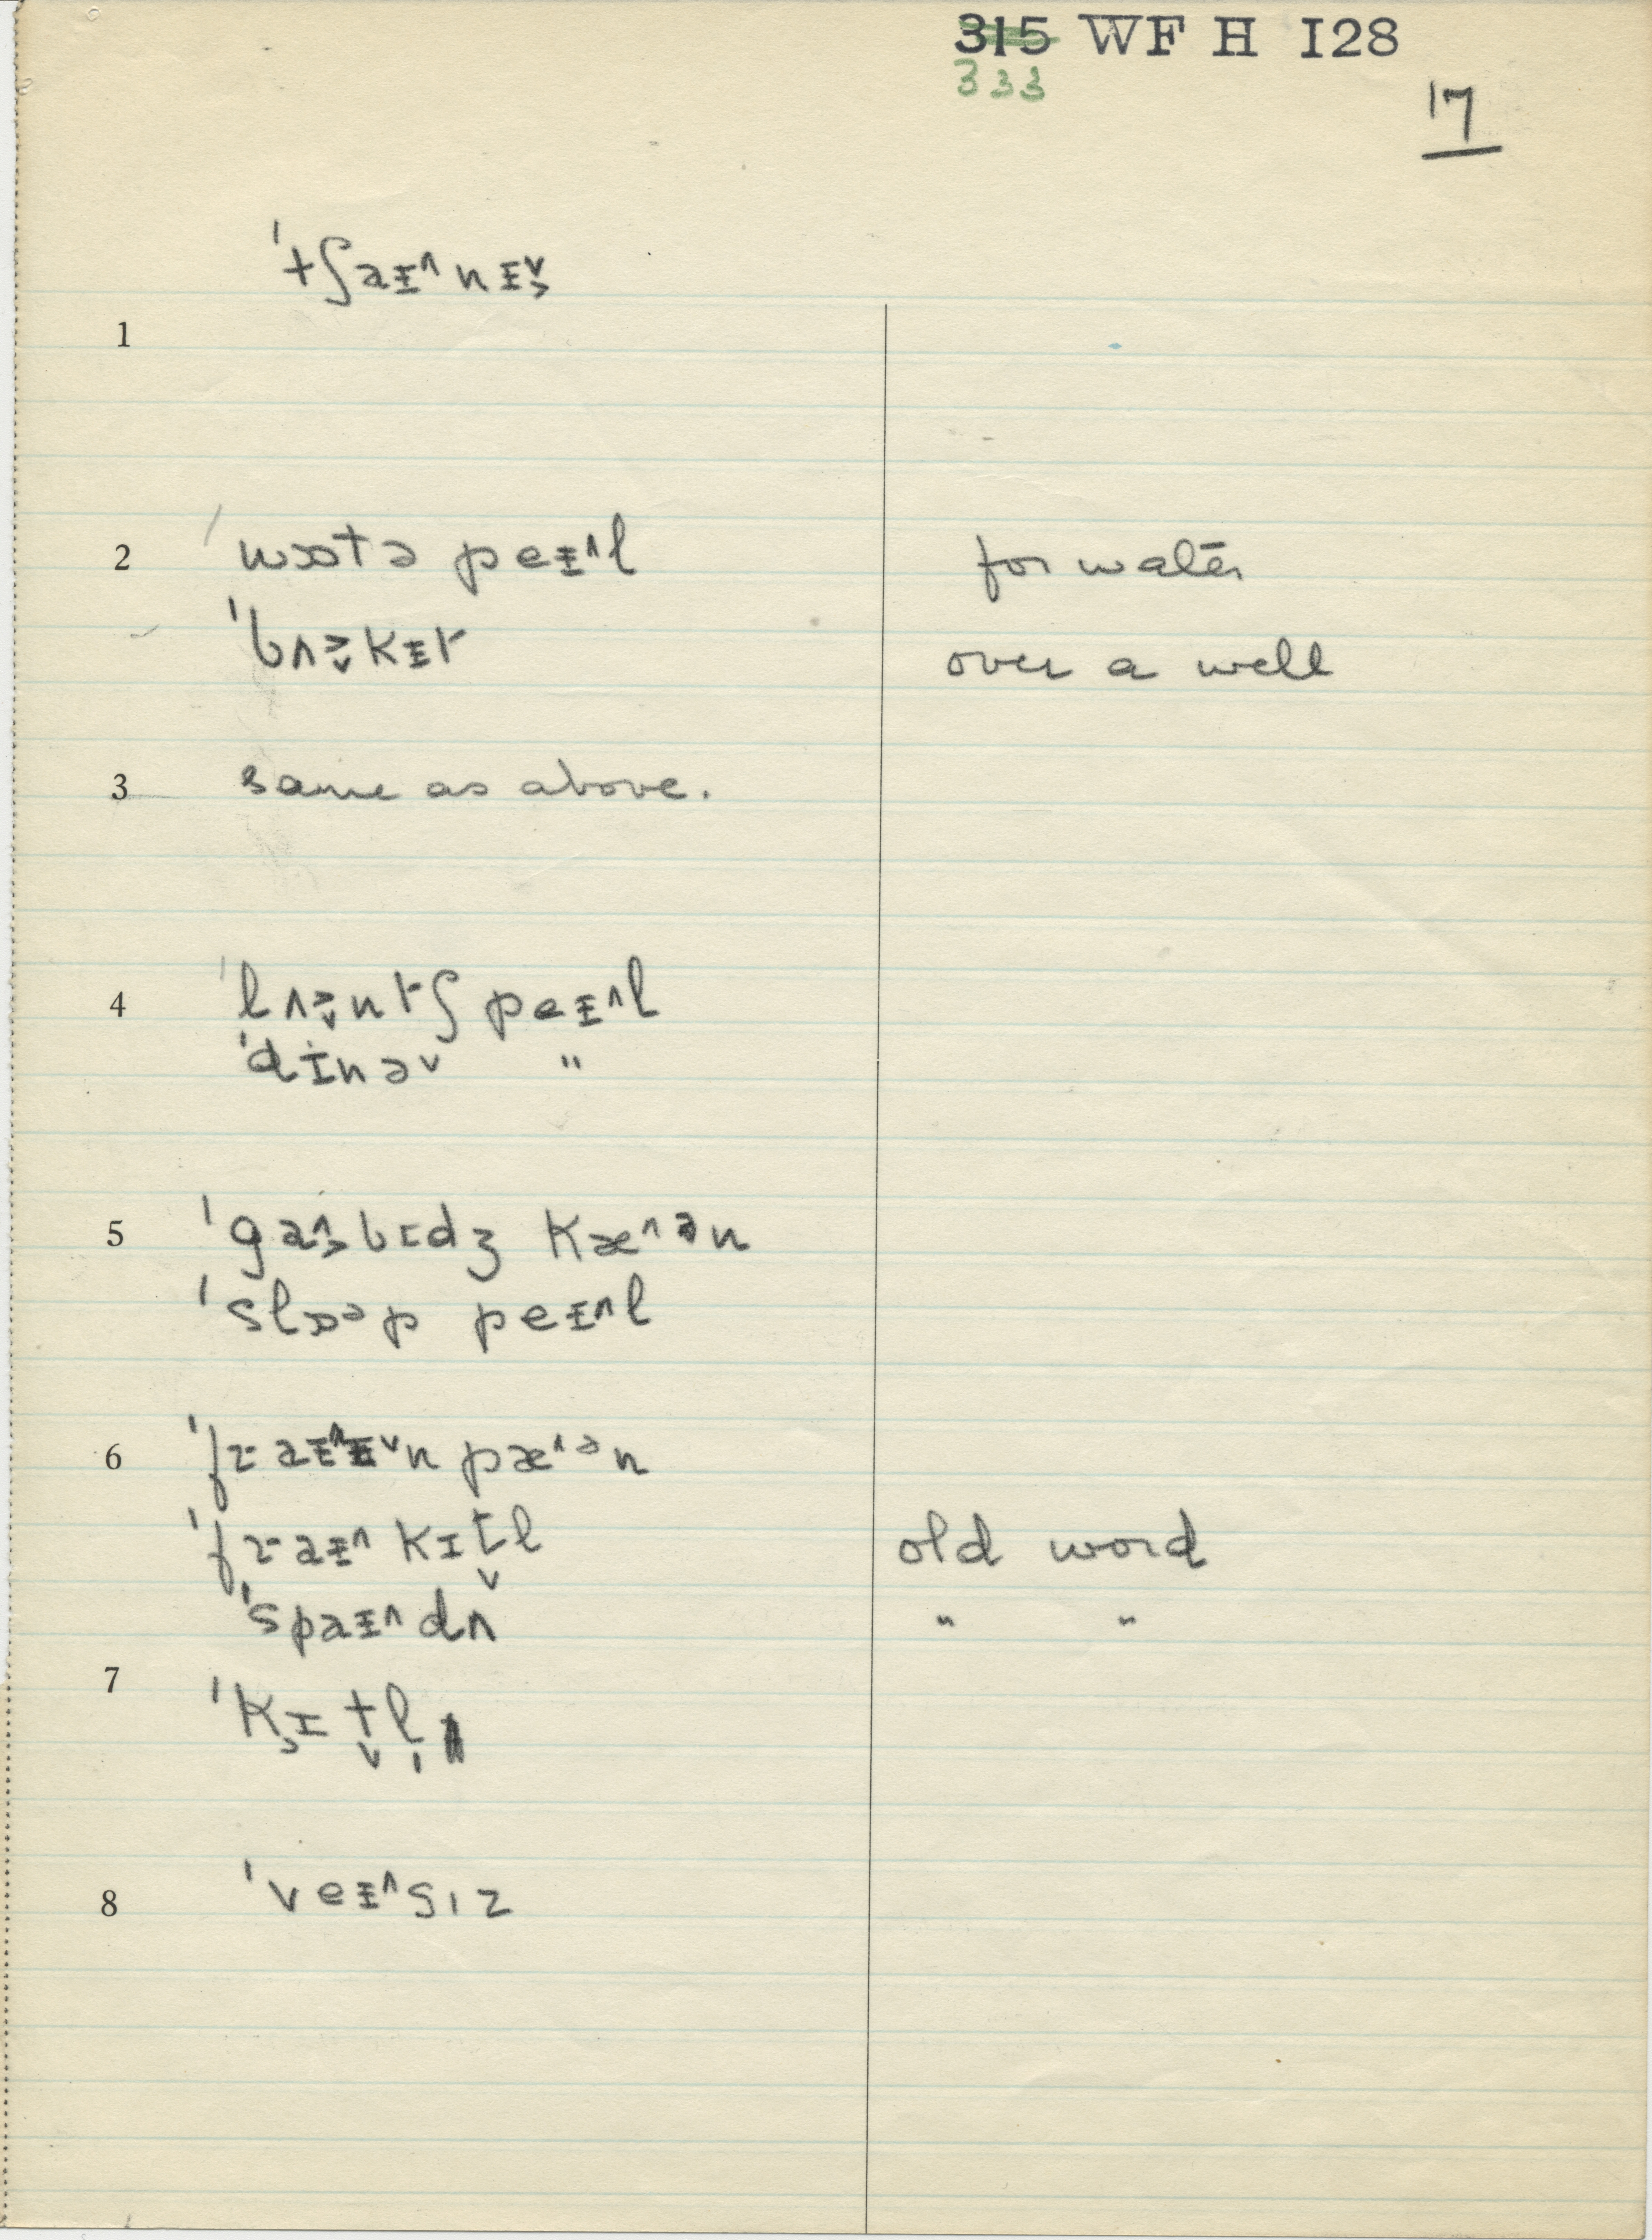 315 WF H I28
333
17
ˈtʃaɪ^nɪ̬
1
2 ˈwɒtə peɪ^l for water
ˈbʌ̬kɪt over a well
3 same as above.
4 ˈlʌ̬ntʃ peɪ^l
ˈdɪnəˇ "
5 ˈga^bɪdʒ kæ^ən
ˈslɒəp peɪ^l
6 ˈfɹaɪ^ɪˇn pæ^ən
ˈfɹaɪ^ kɪt̬l old word
ˈspaɪ^dʌ " "
7 ˈkɪt̬l̩
8 ˈveɪ^sɪz